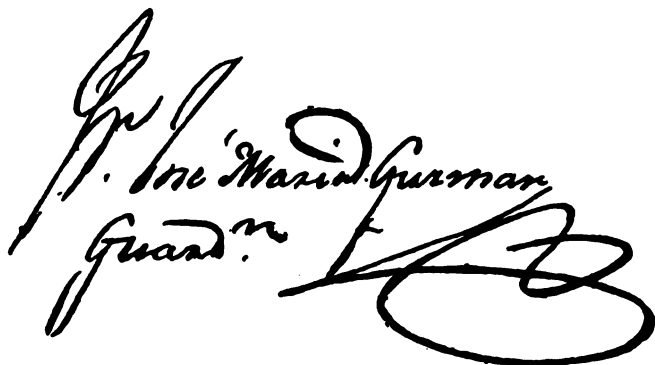 Fr. José Maria Guzman
Guard.n